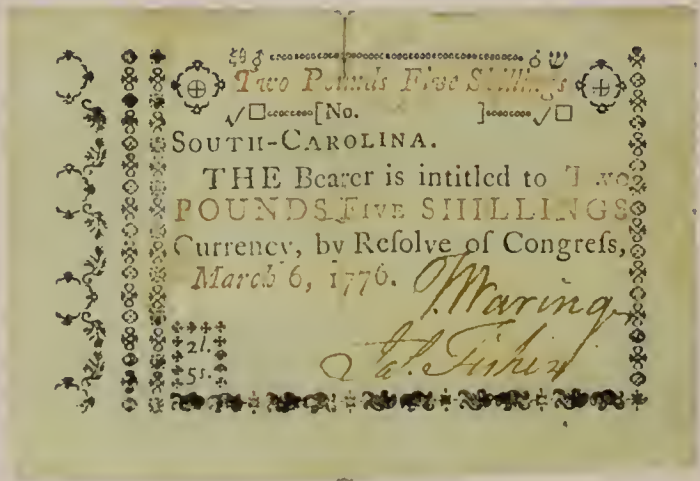 Two Pounds Five Shillings
[No. ]
SOUTH-CAROLINA.
THE Bearer is intitled to Two
POUNDS FIVE SHILLINGS
Currency, by Reſolve of Congreſs,
March 6, 1776.
T. Waring
2l.
Ja. Fisher
5s.